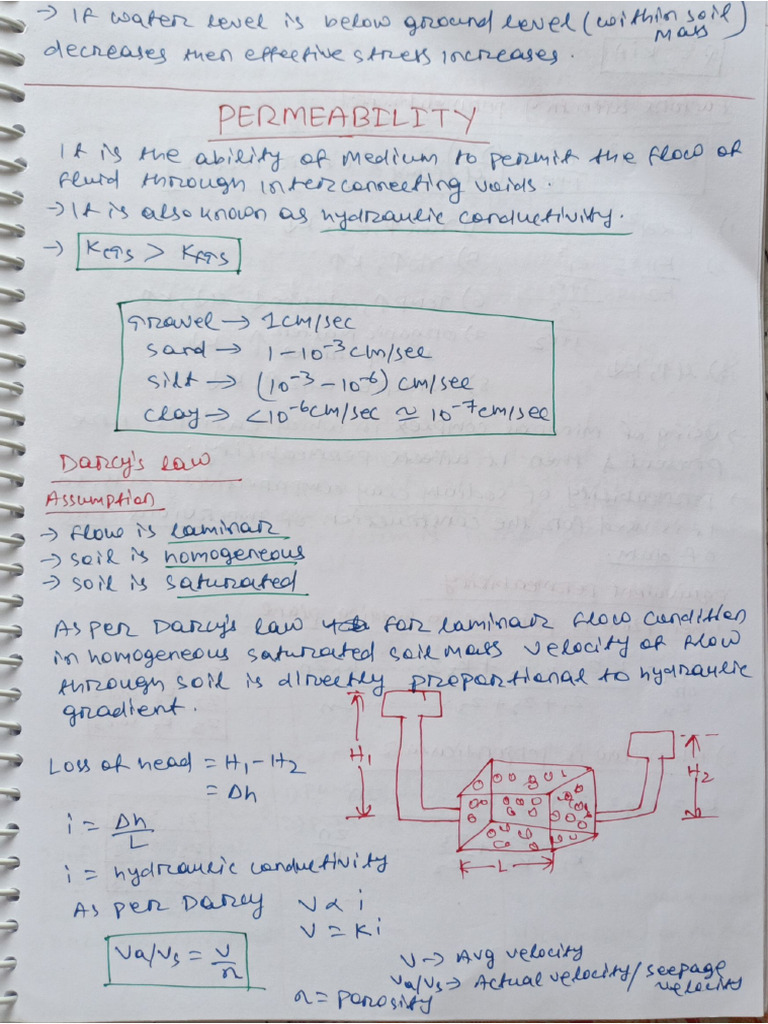 → If water level is below ground level (within soil mass)
decreases then effective stress increases.
PERMEABILITY
It is the ability of medium to permit the flow of
fluid through interconnecting voids.
→ It is also known as hydraulic conductivity.
→ K_CGS > K_FGS
Gravel → 1 cm/sec
Sand → 1 – 10⁻³ cm/sec
Silt → (10⁻³ – 10⁻⁶) cm/sec
Clay → < 10⁻⁶ cm/sec ≃ 10⁻⁷ cm/sec
Darcy's law
Assumption
→ Flow is laminar
→ Soil is homogeneous
→ Soil is saturated
As per Darcy's law for laminar flow condition
in homogeneous saturated soil mass velocity of flow
through soil is directly proportional to hydraulic
gradient.
Loss of head = H₁ – H₂
= Δh
i = Δh/L
i = hydraulic conductivity
H₁
H₂
L
As per Darcy V ∝ i
V = Ki
Va/Vs = V/n
V → Avg velocity
Va/Vs → Actual velocity / seepage velocity
n = porosity